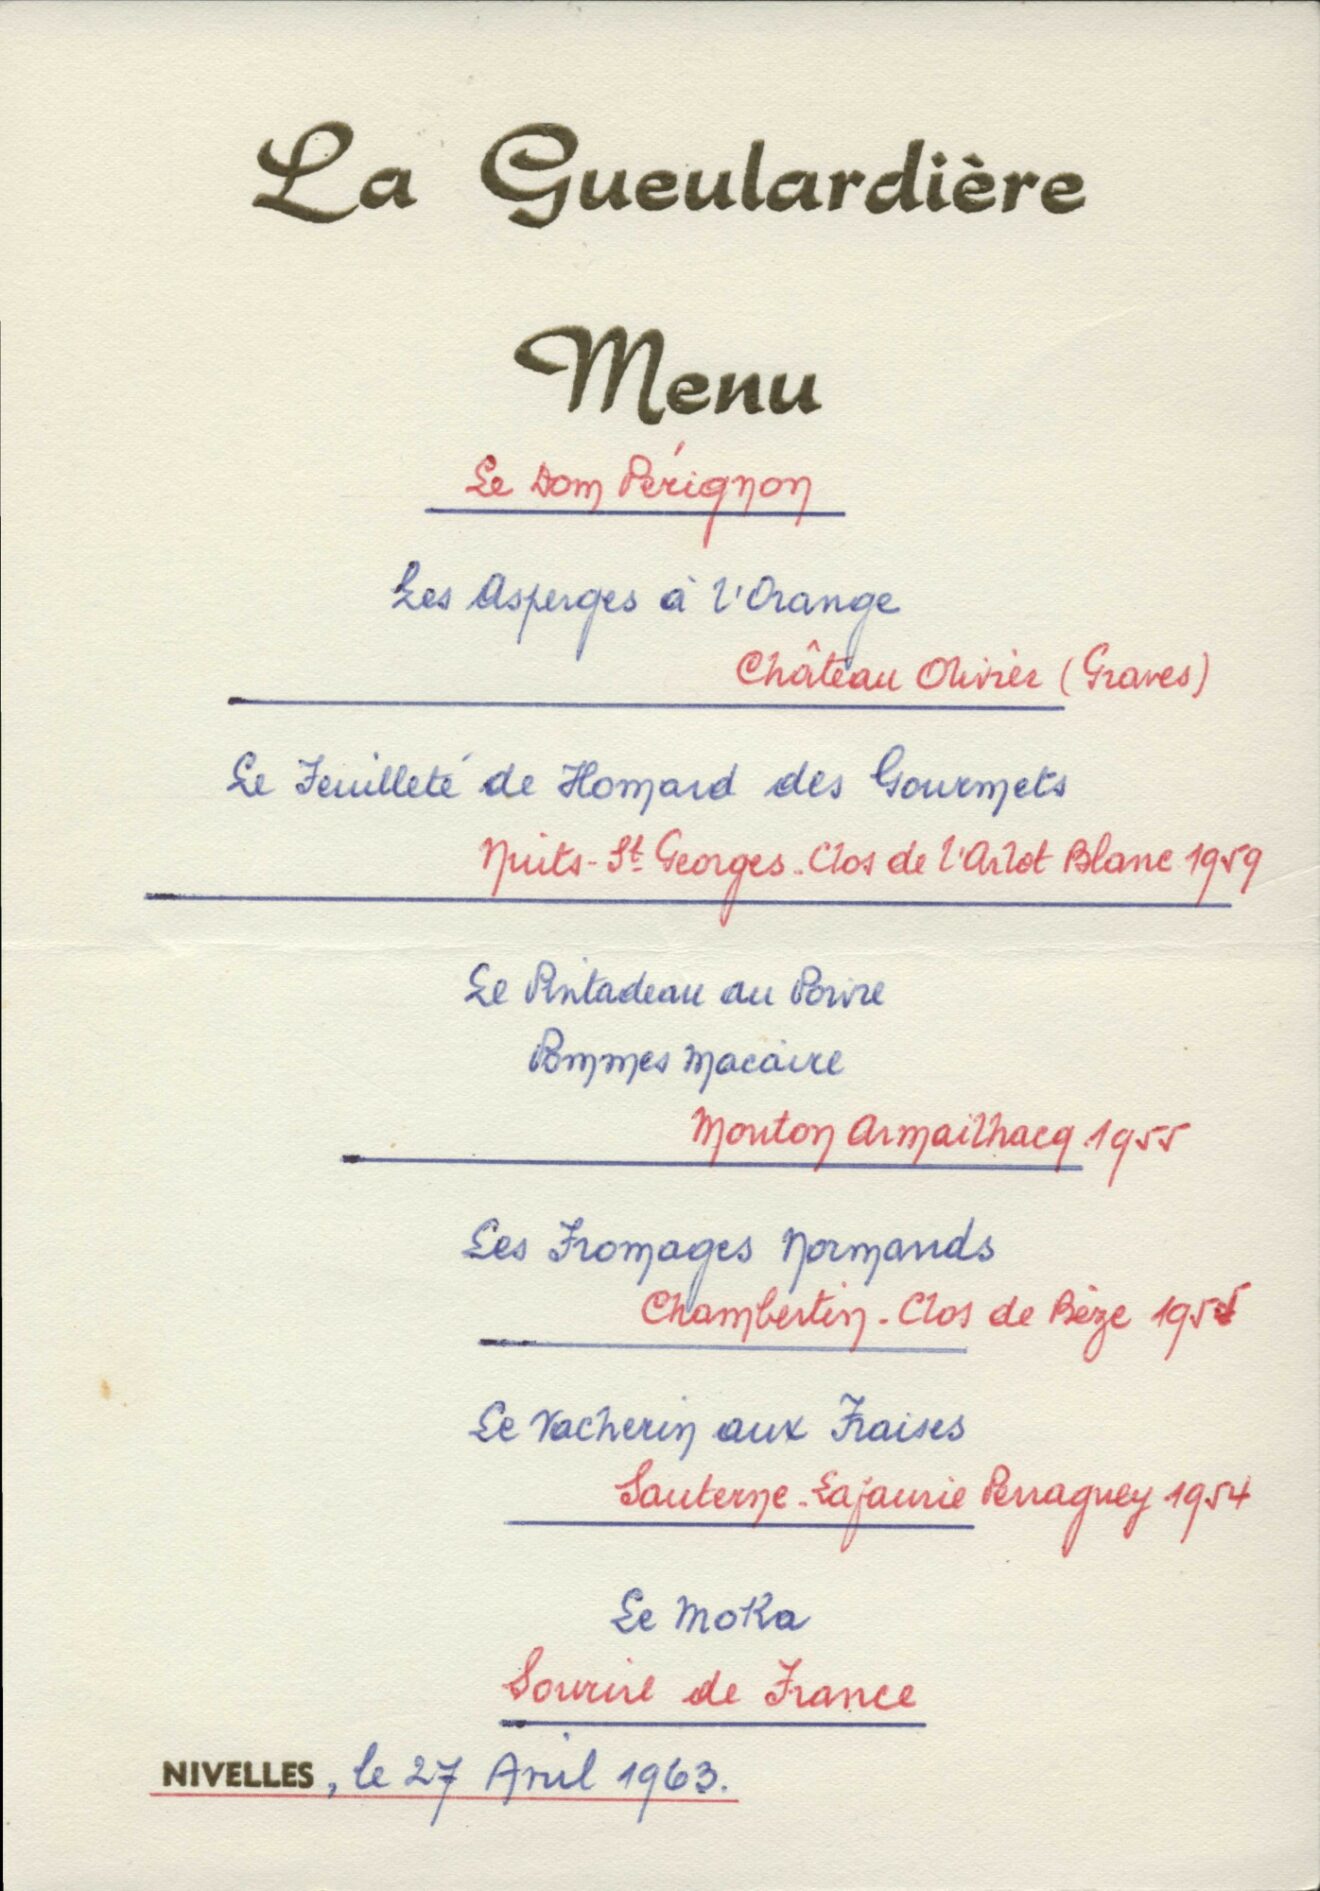 La Gueulardière
Menu
Le Dom Pérignon
Les Asperges à l'Orange
Château Olivier (Graves)
Le Feuilleté de Homard des Gourmets
Nuits-St Georges-Clos de l'Arlot Blanc 1959
Le Pintadeau au Poivre
Pommes Macaire
Mouton Armailhacq 1955
Les Fromages Normands
Chambertin-Clos de Bèze 1955
Le Vacherin aux Fraises
Sauterne-Lafaurie Perraguey 1954
Le Moka
Sourire de France
NIVELLES, le 27 Avril 1963.